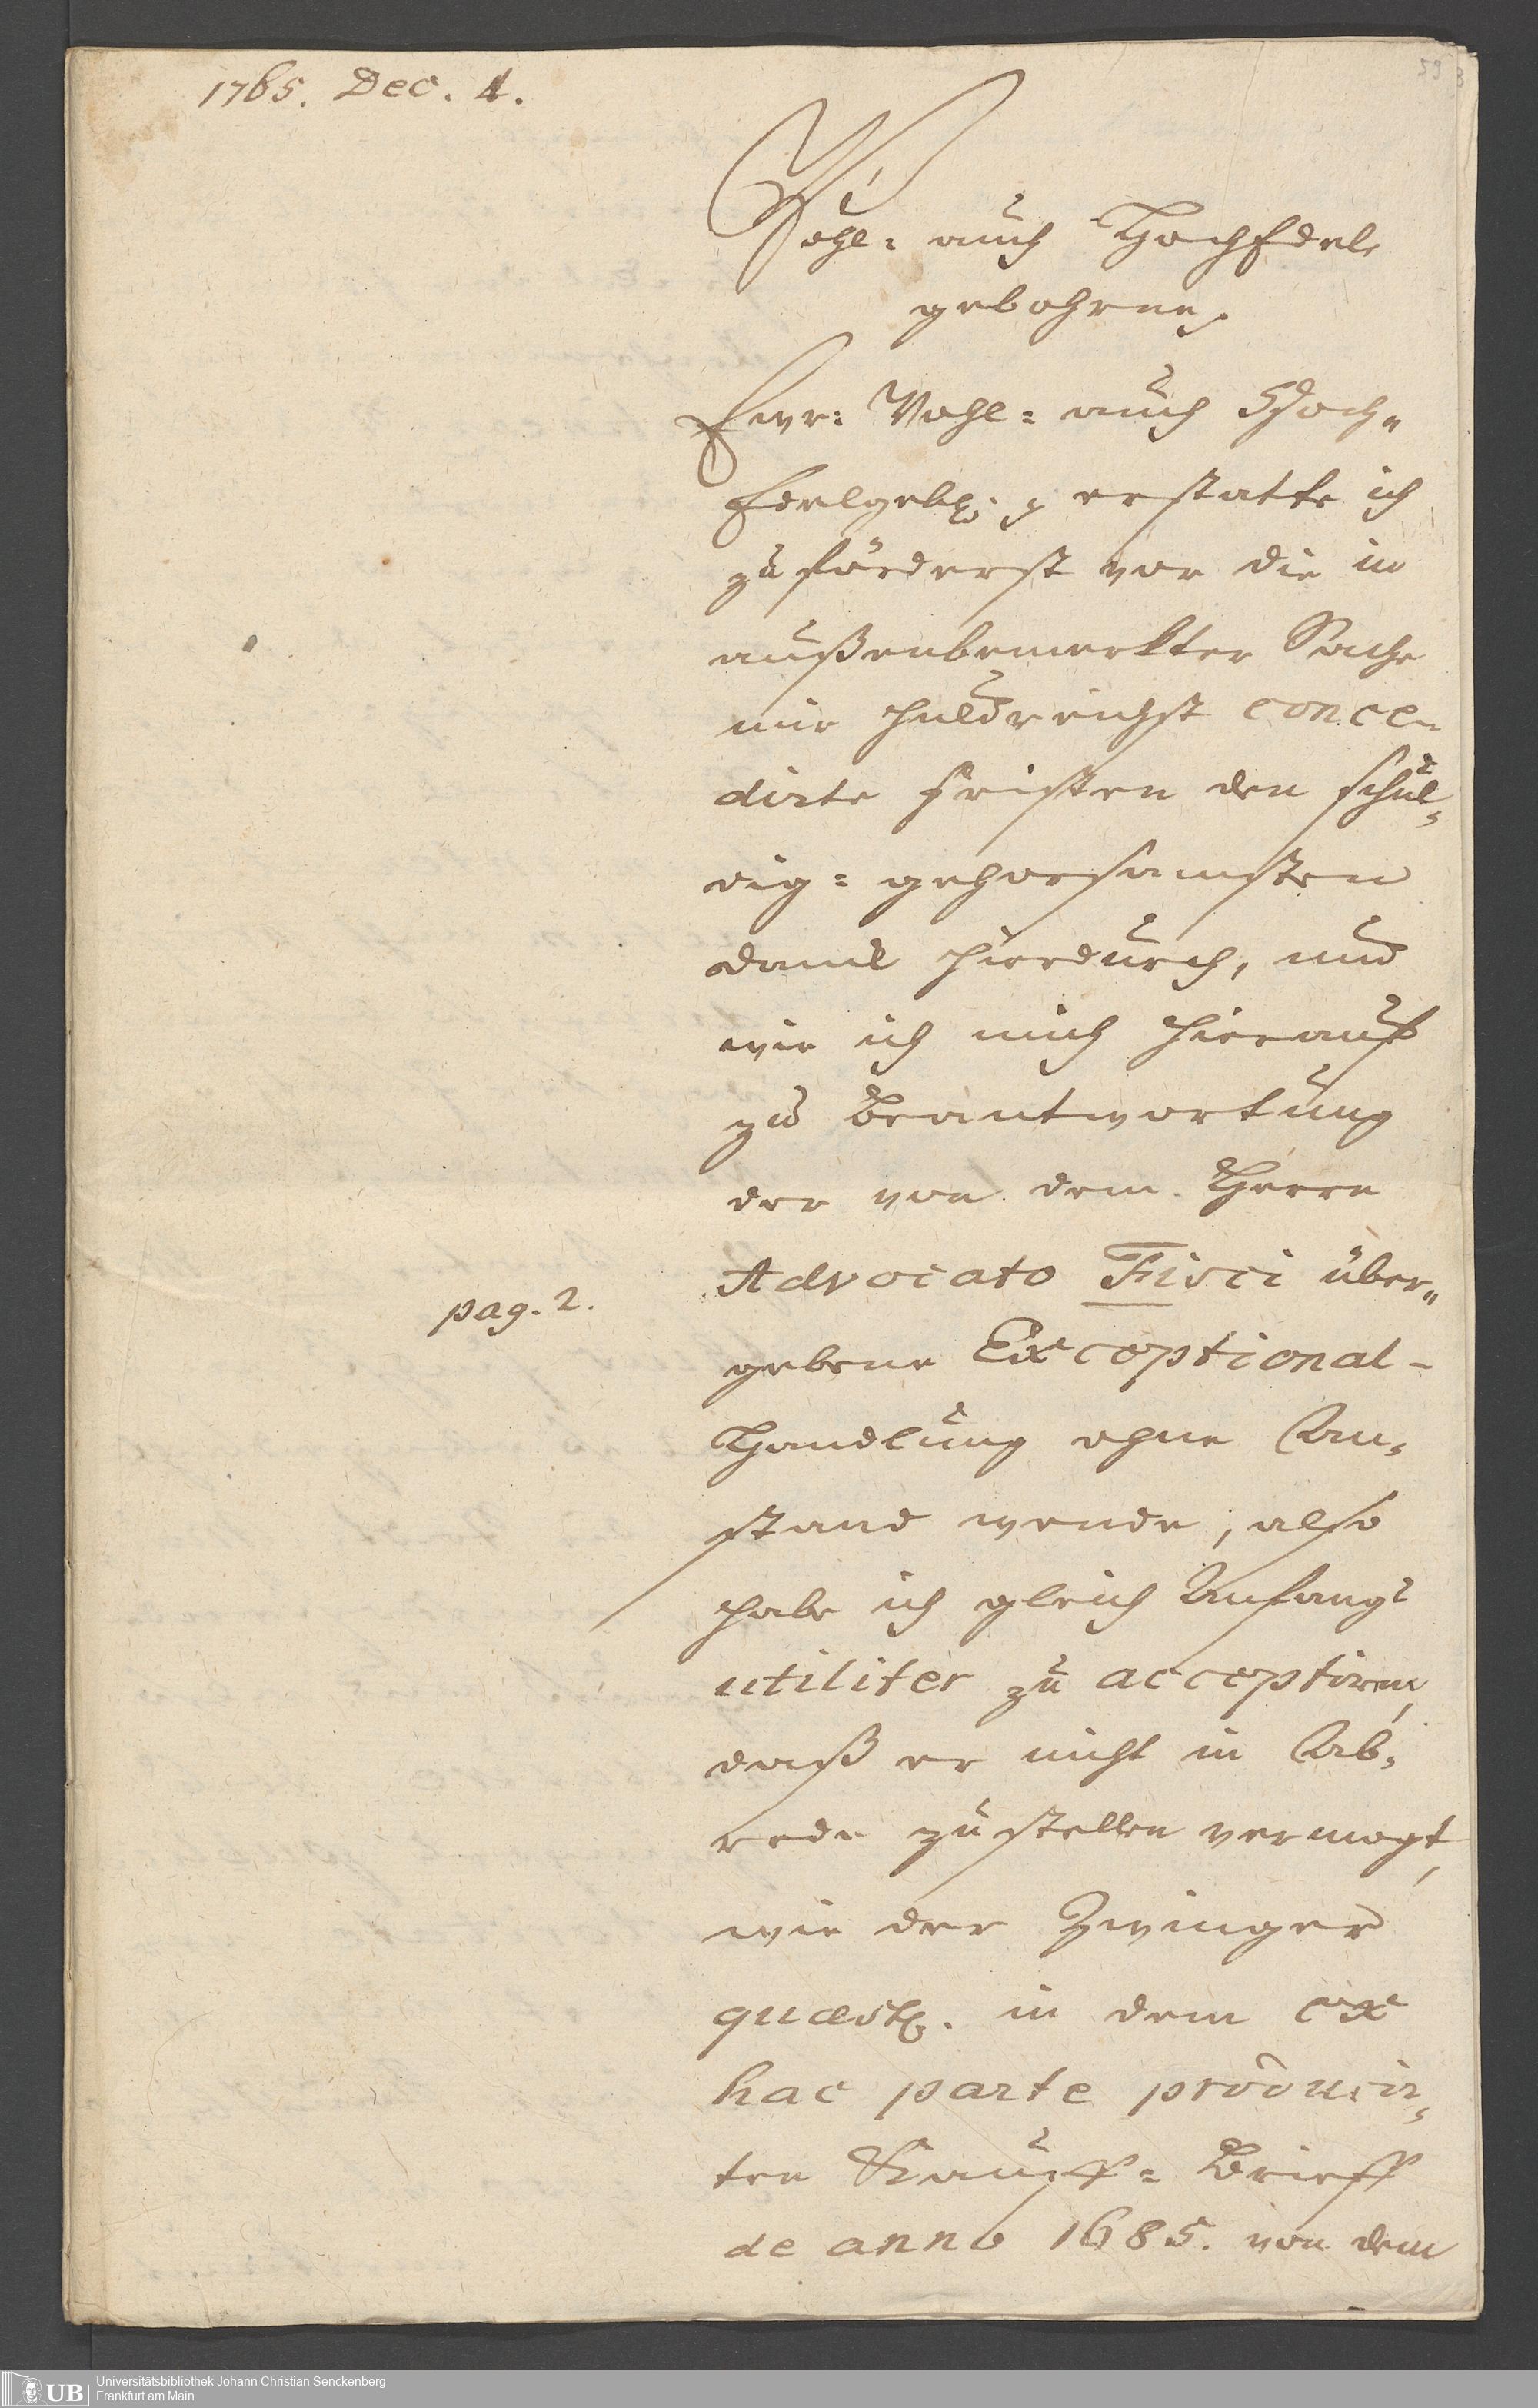 59
1765. Dec. 4.
Wohl- auch HochEdel-
gebohrne,
Ewr: Wohl- auch Hoch-
Edelgeb. p erstatte ich
zuförderst vor die in
außenbemerkter Sache
mir huldreichst conce-
dirte Fristen den schul-
dig- gehorsamsten
Danck hierdurch, und
wie ich mich hierauf
zu Beantwortung
der von dem Herrn
Advocato Fisci über-
pag. 2.
gebene Exceptional-
Handlung ohne An-
stand wende, also
habe ich gleich Anfangs
utiliter zu acceptiren,
daß er nicht in Ab-
rede zu stellen vermogt,
wie der Zwinger
quæst. in dem ex
hac parte producir-
ten Kauff- Brieff
de anno 1685. von dem
UB
Universitätsbibliothek Johann Christian Senckenberg
Frankfurt am Main